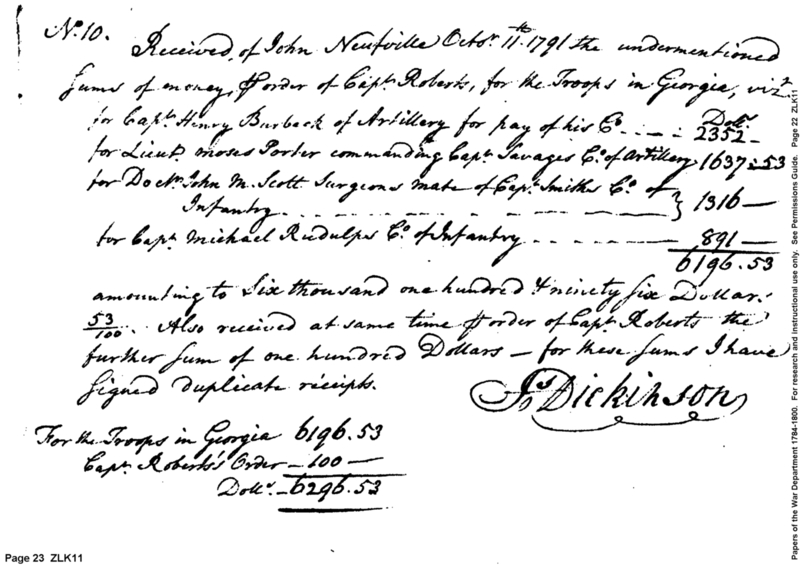 No. 10.
Received, of John Neufville Octor. 11th. 1791 the undermentioned
sums of money, ⅌ order of Capt. Roberts, for the Troops in Georgia, vizt.
Dolls.
for Capt. Henry Burbeck of Artillery for pay of his Co. - - - 2352 -
for Lieut. Moses Porter commanding Capt. Savages Co. of Artillery 1637 : 53
for Doctr. John M. Scott Surgeons mate of Capt. Smiths Co. of
Infantry - - - - - - - - } 1316 —
for Capt. Michael Rudulphs Co. of Infantry - - - - - 891 —
6196.53
amounting to Six thousand one hundred & ninety six Dollars
53/100. Also received at same time ⅌ order of Capt. Roberts the
further sum of one hundred Dollars — for these sums I have
signed duplicate receipts.
Js. Dickinson
For the Troops in Georgia 6196.53
Capt. Roberts's Order — 100 —
Dolls. — 6296.53
Page 23 ZLK11
Papers of the War Department 1784-1800. For research and instructional use only. See Permissions Guide. Page 22 ZLK11